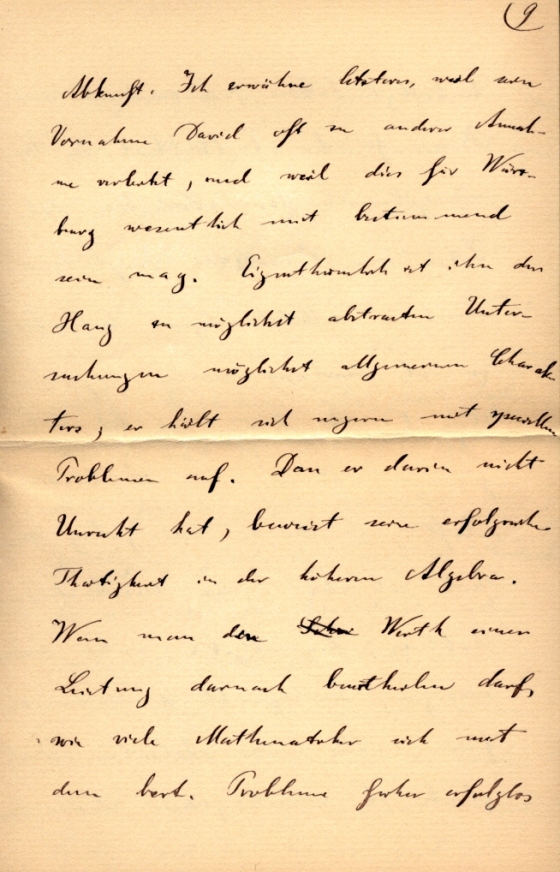 9
Abkunft. Ich erwähne letzteres, weil sein
Vorname David oft zu anderer Annah-
me verleitet, und weil dies für Würz-
burg wesentlich mit bestimmend
sein mag. Eigenthümlich ist ihm der
Hang zu möglichst abstracten Unter-
suchungen möglichst allgemeinen Charak-
ters; er hält sich ungern mit speciellen
Problemen auf. Dass er darin nicht
Unrecht hat, beweist seine erfolgreiche
Thätigkeit in der höheren Algebra.
Wenn man den Werth einer
Leistung darnach beurtheilen darf,
wie viele Mathematiker sich mit
dem betr. Probleme früher erfolglos